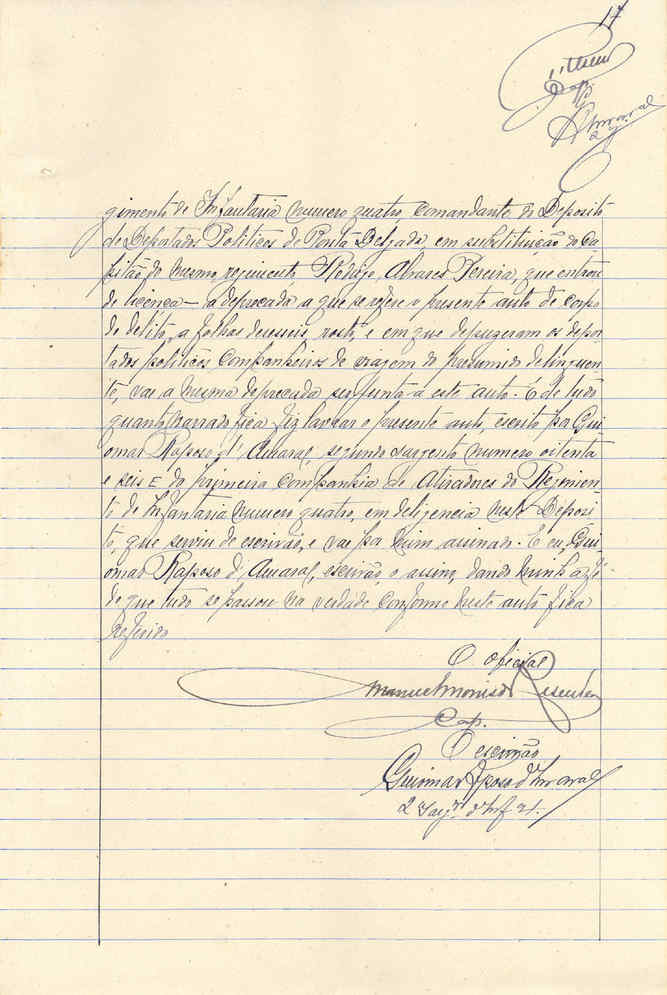 17
Amaral
gimento de Infantaria numero quatro, comandante do Deposito
de Deportados Politicos de Ponta Delgada, em substituição do Ca-
pitão do mesmo rejimento Rodrigo Alvares Pereira, que entrou
de licença — a deprecada a que se refere o presente auto de corpo
de delito, a folhas deseseis, rosto, e em que depuzeram os depor-
tados politicos companheiros de viagem do presumido delinquen-
te, vae a mesma deprecada ser junta a este auto. E de tudo
quanto narrado fica fiz lavrar o presente auto, escrito por Gui-
omar Raposo d'Amaral, segundo sargento numero oitenta
e seis E da primeira companhia de Atiradores do Regimen-
to de Infantaria numero quatro, em deligencia neste Deposi-
to, que serviu de escrivão, e vae por mim assinado. E eu, Gui-
omar Raposo d'Amaral, escrivão o assino, dando minha fé
de que tudo se passou na verdade conforme neste auto fica
referido.
O oficial
Manuel Moniz de
Cap.
O escrivão
Guiomar Raposo d'Amaral
2º Sargº d'Inf 4.